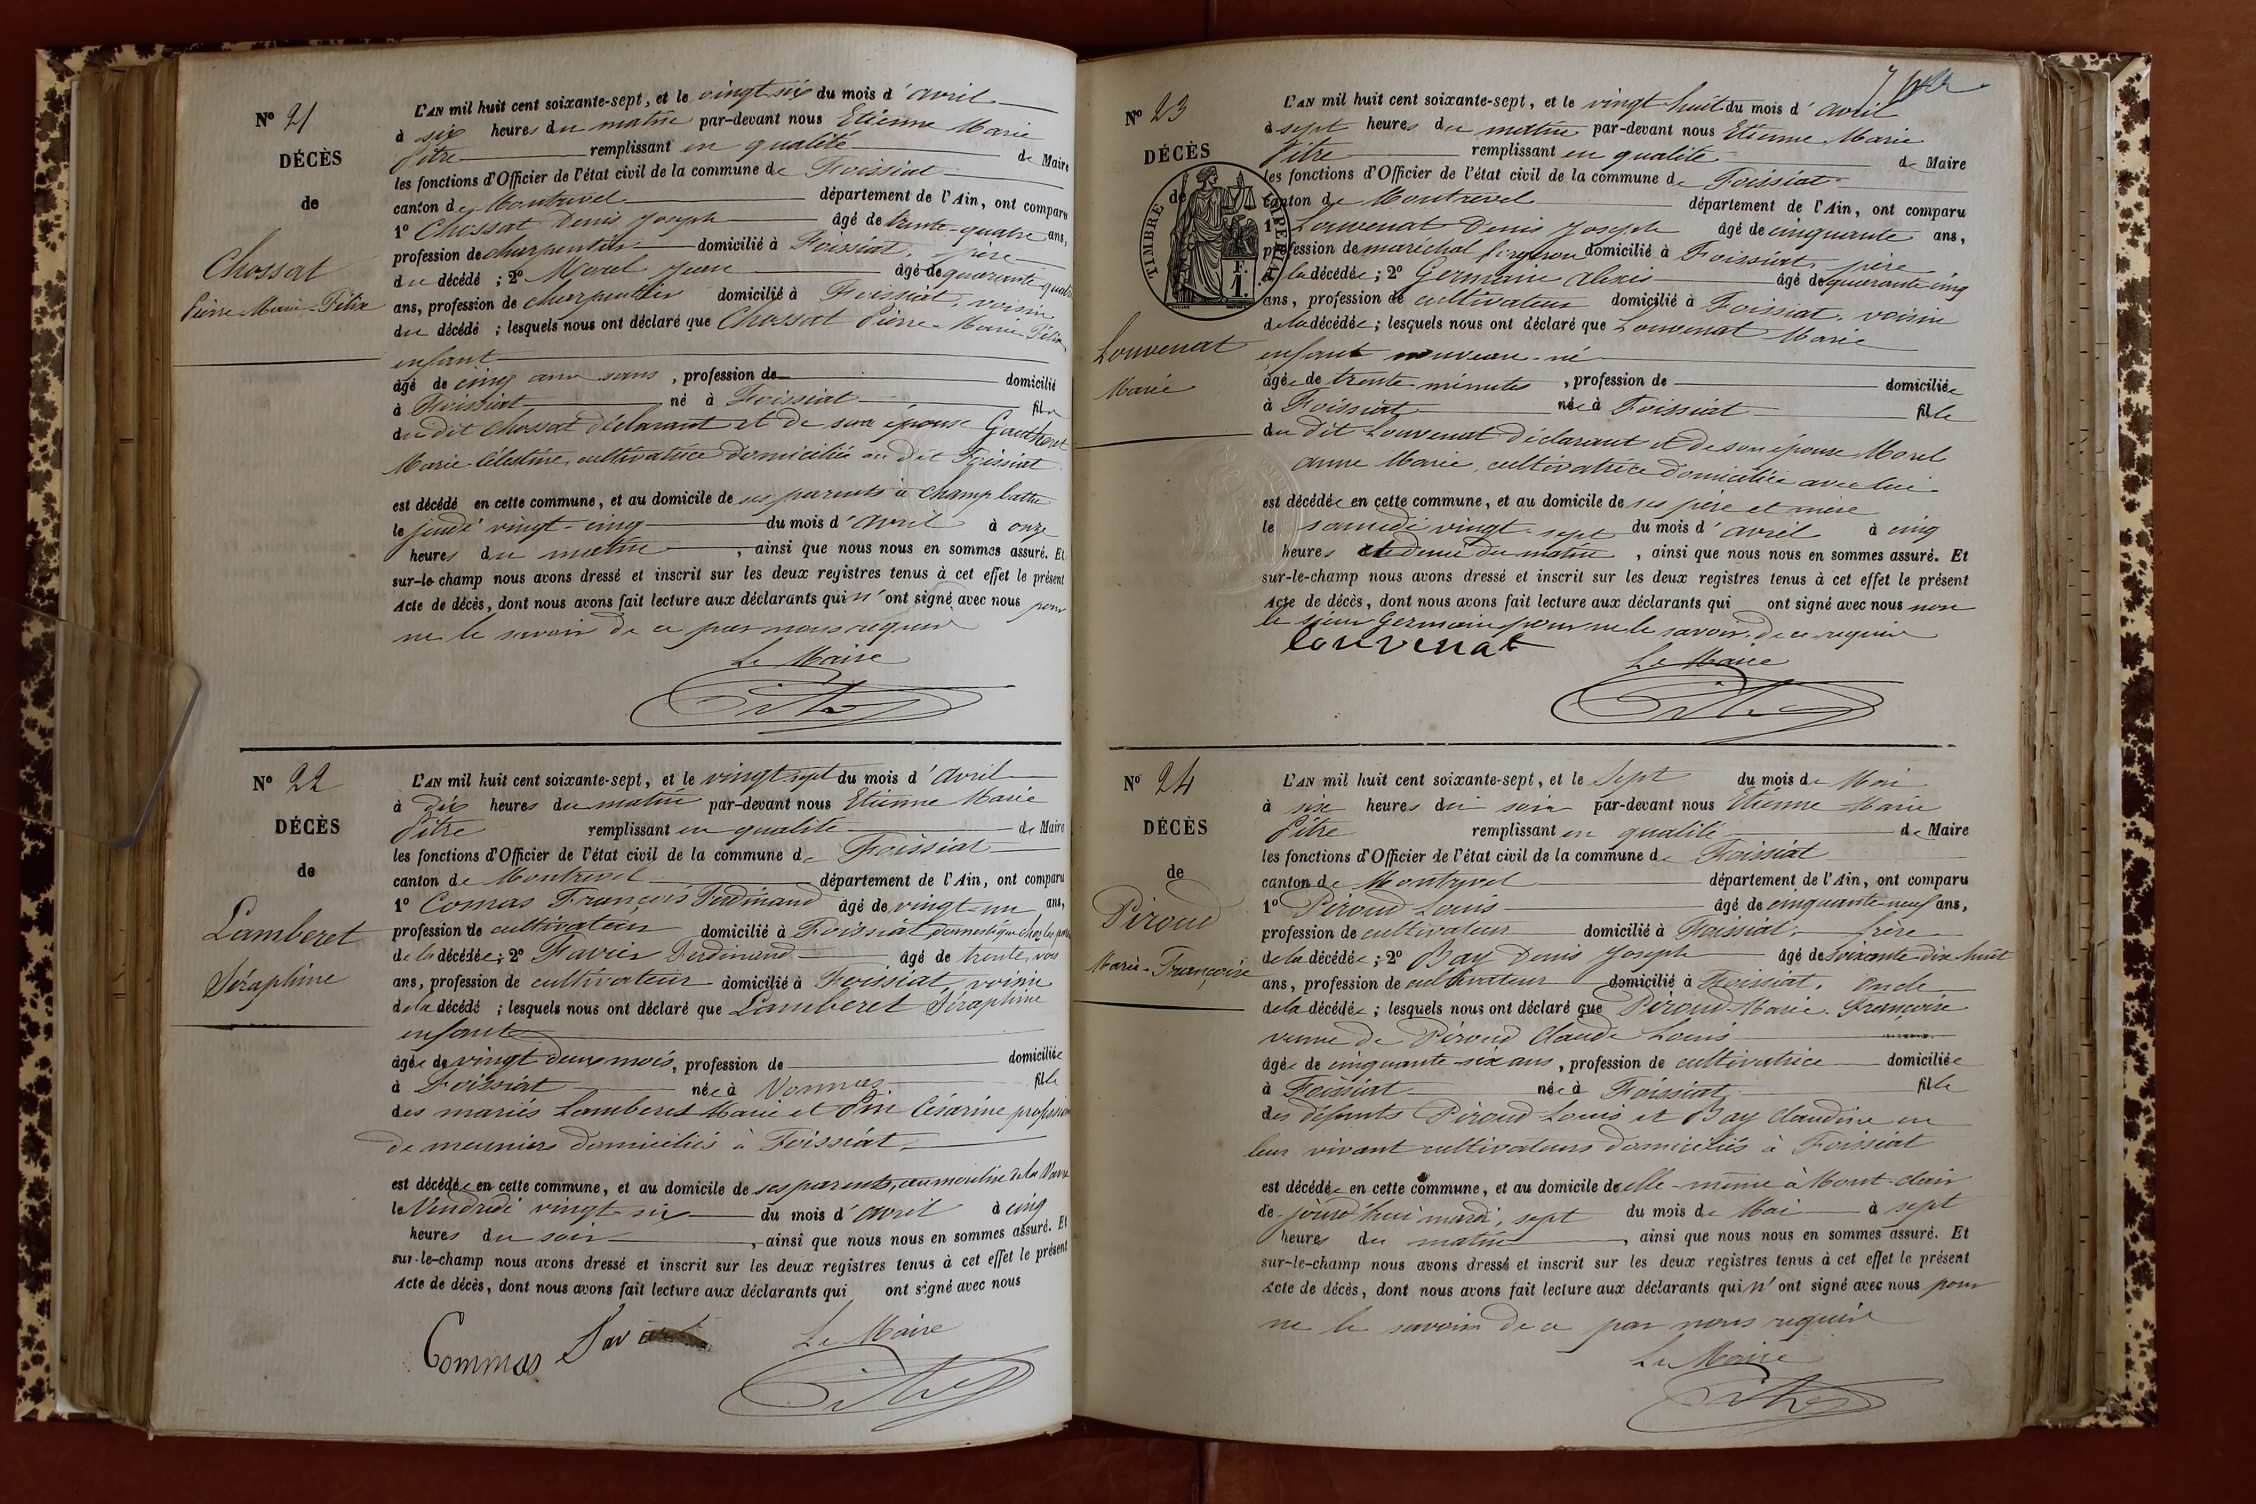 Nº 21
DÉCÈS
de
Chossat
Pierre-Marie-Félix
L'AN mil huit cent soixante-sept, et le vingt six du mois d'avril
à six heures du matin par-devant nous Etienne Marie
Pitre remplissant en qualité de Maire
les fonctions d'Officier de l'état civil de la commune de Foissiat
canton de Montrevel département de l'Ain, ont comparu
1º Chossat Denis Joseph âgé de trente-quatre ans,
profession de charpentier domicilié à Foissiat, père
du décédé ; 2º Morel Jean âgé de quarante quatre
ans, profession de charpentier domicilié à Foissiat, voisin
du décédé ; lesquels nous ont déclaré que Chossat Pierre-Marie-Félix
enfant
âgé de cinq ans, profession de domicilié
à Foissiat né à Foissiat fils
du dit Chossat déclarant et de son épouse
Marie Célestine, cultivatrice domiciliée au dit Foissiat
est décédé en cette commune, et au domicile de ses parents à Champ
le jeudi vingt-cinq du mois d'avril à onze
heures du matin, ainsi que nous nous en sommes assuré. Et
sur-le-champ nous avons dressé et inscrit sur les deux registres tenus à cet effet le présent
Acte de décès, dont nous avons fait lecture aux déclarants qui n'ont signé avec nous pour
ne le savoir de ce par nous requis
Le Maire
Pitre
Nº 22
DÉCÈS
de
Lamberet
Séraphine
L'AN mil huit cent soixante-sept, et le vingt sept du mois d'avril
à dix heures du matin par-devant nous Etienne Marie
Pitre remplissant en qualité de Maire
les fonctions d'Officier de l'état civil de la commune de Foissiat
canton de Montrevel département de l'Ain, ont comparu
1º Comas François Ferdinand âgé de vingt-un ans,
profession de cultivateur domicilié à Foissiat, domestique chez les père
de la décédée ; 2º Favier Ferdinand âgé de trente
ans, profession de cultivateur domicilié à Foissiat, voisin
de la décédé ; lesquels nous ont déclaré que Lamberet Séraphine
enfant
âgée de vingt deux mois, profession de domiciliée
à Foissiat née à Vonnas fille
des mariés Lamberet Marie et Pin Césarine profession
de meuniers domiciliés à Foissiat
est décédée en cette commune, et au domicile de ses parents, au moulin de la
le Vendredi vingt-six du mois d'avril à cinq
heures du soir, ainsi que nous nous en sommes assuré. Et
sur-le-champ nous avons dressé et inscrit sur les deux registres tenus à cet effet le présent
Acte de décès, dont nous avons fait lecture aux déclarants qui ont signé avec nous
Commas
Le Maire
Pitre
Nº 23
DÉCÈS
de
TIMBRE IMPERIAL
F.
1.
Louvenat
Marie
L'AN mil huit cent soixante-sept, et le vingt huit du mois d'avril
à sept heures du matin par-devant nous Etienne Marie
Pitre remplissant en qualité de Maire
les fonctions d'Officier de l'état civil de la commune de Foissiat
canton de Montrevel département de l'Ain, ont comparu
1º Louvenat Denis Joseph âgé de cinquante ans,
profession de maréchal forgeron domicilié à Foissiat, père
de la décédée ; 2º Germain Alexis âgé de quarante cinq
ans, profession de cultivateur domicilié à Foissiat, voisin
de la décédée ; lesquels nous ont déclaré que Louvenat Marie
enfant nouveau-né
âgée de trente minutes, profession de domiciliée
à Foissiat née à Foissiat fille
du dit Louvenat déclarant et de son épouse Morel
Anne Marie, cultivatrice domiciliée avec lui
est décédée en cette commune, et au domicile de ses père et mère
le samedi vingt-sept du mois d'avril à cinq
heures et demie du matin, ainsi que nous nous en sommes assuré. Et
sur-le-champ nous avons dressé et inscrit sur les deux registres tenus à cet effet le présent
Acte de décès, dont nous avons fait lecture aux déclarants qui ont signé avec nous non
le sieur Germain pour ne le savoir, de ce requis
Louvenat
Le Maire
Pitre
Nº 24
DÉCÈS
de
Piroud
Marie-Françoise
L'AN mil huit cent soixante-sept, et le sept du mois de Mai
à six heures du soir par-devant nous Etienne Marie
Pitre remplissant en qualité de Maire
les fonctions d'Officier de l'état civil de la commune de Foissiat
canton de Montrevel département de l'Ain, ont comparu
1º Piroud Louis âgé de cinquante-neuf ans,
profession de cultivateur domicilié à Foissiat, frère
de la décédée ; 2º Bay Denis Joseph âgé de soixante dix huit
ans, profession de cultivateur domicilié à Foissiat, oncle
de la décédée ; lesquels nous ont déclaré que Piroud Marie-Françoise
veuve de Piroud Claude Louis
âgée de cinquante-six ans, profession de cultivatrice domiciliée
à Foissiat née à Foissiat fille
des défunts Piroud Louis et Bay Claudine en
leur vivant cultivateurs domiciliés à Foissiat
est décédée en cette commune, et au domicile d'elle-même à Mont-clair
de jourd'hui mardi, sept du mois de Mai à sept
heures du matin, ainsi que nous nous en sommes assuré. Et
sur-le-champ nous avons dressé et inscrit sur les deux registres tenus à cet effet le présent
Acte de décès, dont nous avons fait lecture aux déclarants qui n'ont signé avec nous pour
ne le savoir de ce par nous requis
Le Maire
Pitre